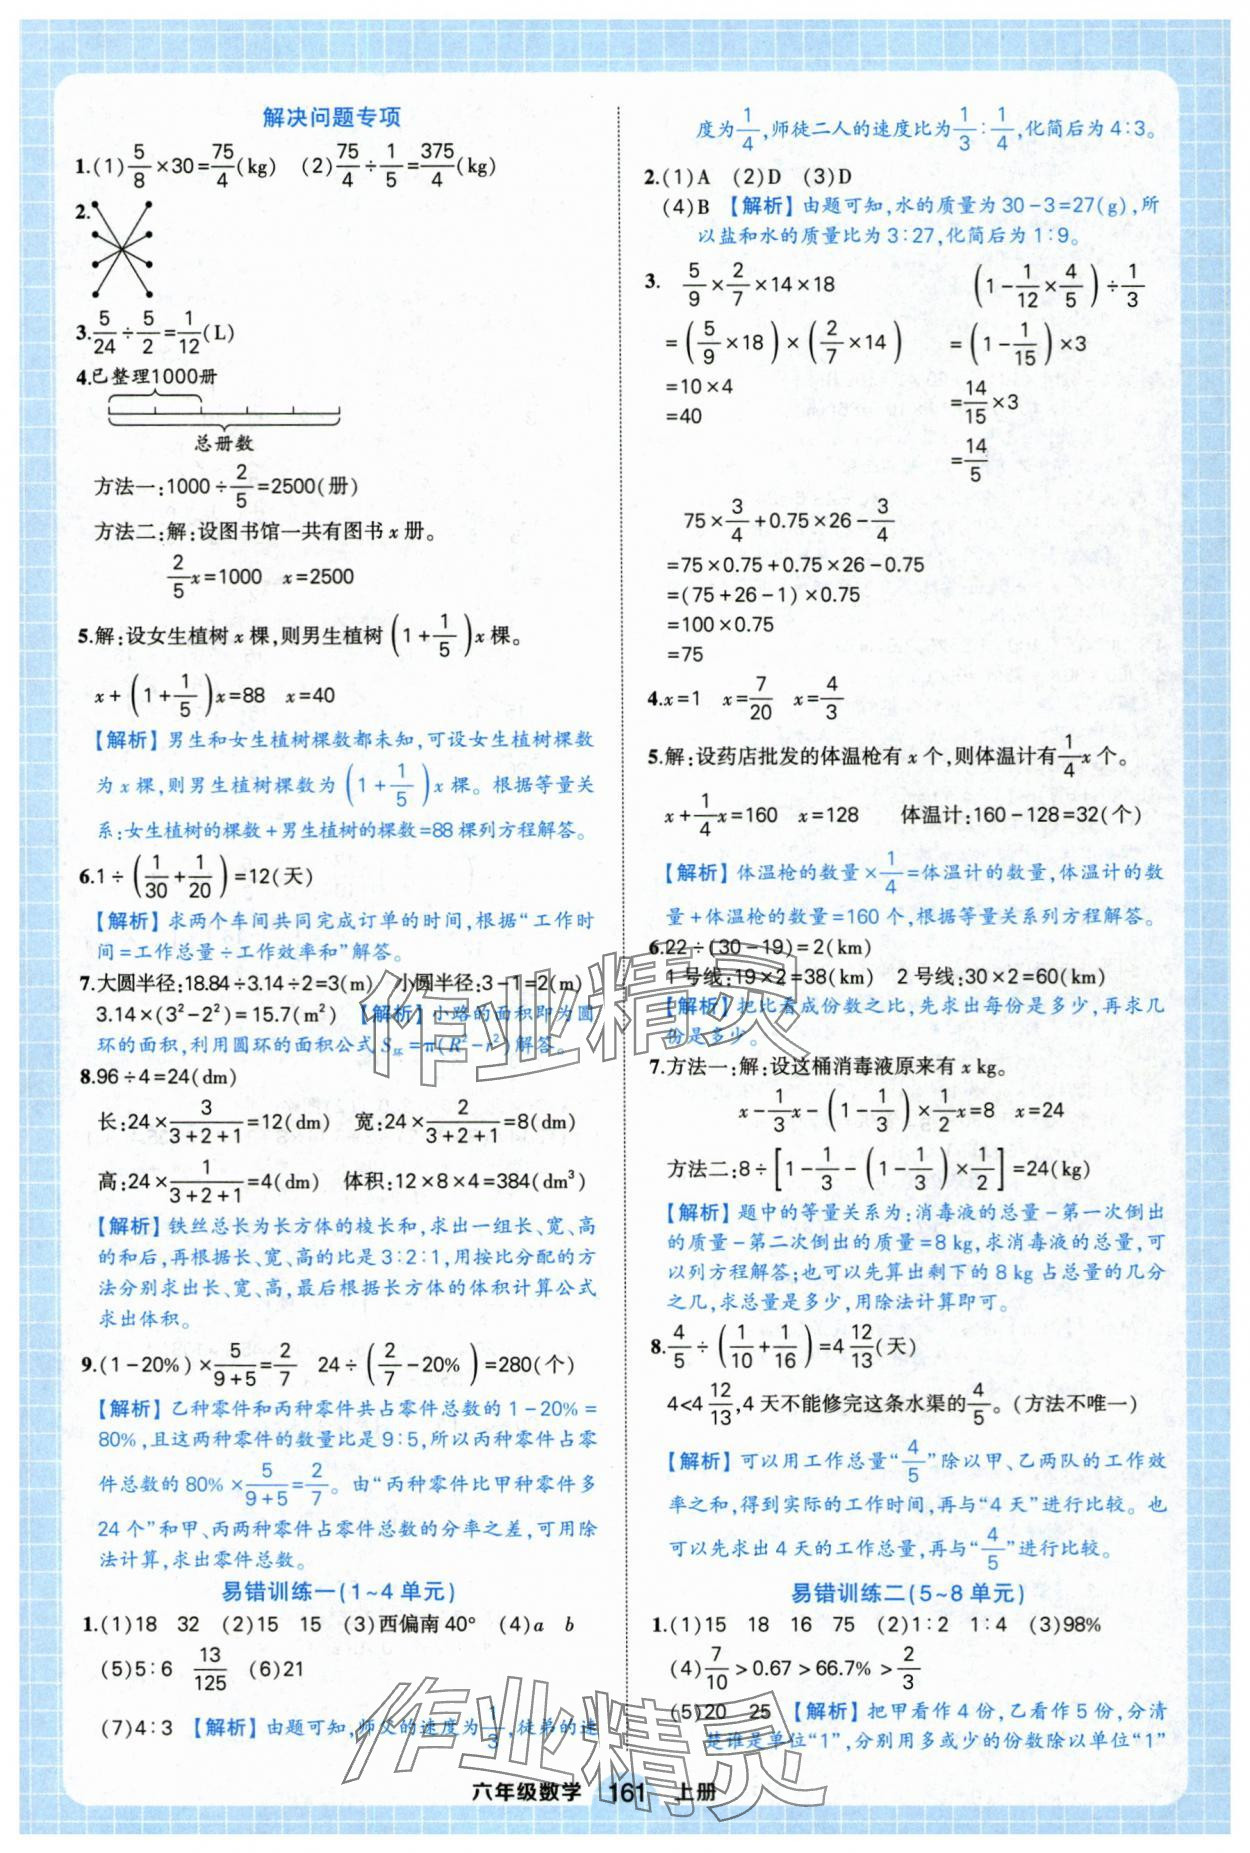 解决问题专项
1.(1) 5/8 ×30= 75/4 (kg) (2) 75/4 ÷ 1/5 = 375/4 (kg)
2.
3. 5/24 ÷ 5/2 = 1/12 (L)
4.已整理1000册
总册数
方法一:1000÷ 2/5 =2500(册)
方法二:解:设图书馆一共有图书 x 册。
2/5 x=1000 x=2500
5.解:设女生植树 x 棵,则男生植树(1+ 1/5)x 棵。
x+(1+ 1/5)x=88 x=40
【解析】男生和女生植树棵数都未知,可设女生植树棵数
为 x 棵,则男生植树棵数为(1+ 1/5)x 棵。根据等量关
系:女生植树的棵数+男生植树的棵数=88 棵列方程解答。
6.1÷(1/30 + 1/20)=12(天)
【解析】求两个车间共同完成订单的时间,根据“工作时
间=工作总量÷工作效率和”解答。
7.大圆半径:18.84÷3.14÷2=3(m) 小圆半径:3-1=2(m)
3.14×(3²-2²)=15.7(m²) 【解析】小路的面积即为圆
环的面积,利用圆环的面积公式 S环=π(R²-r²)解答。
8.96÷4=24(dm)
长:24× 3/(3+2+1) =12(dm) 宽:24× 2/(3+2+1) =8(dm)
高:24× 1/(3+2+1) =4(dm) 体积:12×8×4=384(dm³)
【解析】铁丝总长为长方体的棱长和,求出一组长、宽、高
的和后,再根据长、宽、高的比是 3:2:1,用按比分配的方
法分别求出长、宽、高,最后根据长方体的体积计算公式
求出体积。
9.(1-20%)× 5/(9+5) = 2/7 24÷(2/7 -20%)=280(个)
【解析】乙种零件和丙种零件共占零件总数的 1-20%=
80%,且这两种零件的数量比是 9:5,所以丙种零件占零
件总数的 80%× 5/(9+5) = 2/7。由“丙种零件比甲种零件多
24 个”和甲、丙两种零件占零件总数的分率之差,可用除
法计算,求出零件总数。
易错训练一(1~4 单元)
1.(1)18 32 (2)15 15 (3)西偏南 40° (4)a b
(5)5:6 13/125 (6)21
(7)4:3 【解析】由题可知,师父的速度为 1/3,徒弟的速
度为 1/4,师徒二人的速度比为 1/3 : 1/4,化简后为 4:3。
2.(1)A (2)D (3)D
(4)B 【解析】由题可知,水的质量为 30-3=27(g),所
以盐和水的质量比为 3:27,化简后为 1:9。
3. 5/9 × 2/7 ×14×18 (1- 1/12 × 4/5)÷ 1/3
=(5/9 ×18)×(2/7 ×14) =(1- 1/15)×3
=10×4 = 14/15 ×3
=40
= 14/5
75× 3/4 +0.75×26- 3/4
=75×0.75+0.75×26-0.75
=(75+26-1)×0.75
=100×0.75
=75
4.x=1 x= 7/20 x= 4/3
5.解:设药店批发的体温枪有 x 个,则体温计有 1/4 x 个。
x+ 1/4 x=160 x=128 体温计:160-128=32(个)
【解析】体温枪的数量× 1/4 =体温计的数量,体温计的数
量+体温枪的数量=160 个,根据等量关系列方程解答。
6.22÷(30-19)=2(km)
1 号线:19×2=38(km) 2 号线:30×2=60(km)
【解析】把比看成份数之比,先求出每份是多少,再求几
份是多少。
7.方法一:解:设这桶消毒液原来有 x kg。
x- 1/3 x-(1- 1/3)× 1/2 x=8 x=24
方法二:8÷[1- 1/3 -(1- 1/3)× 1/2]=24(kg)
【解析】题中的等量关系为:消毒液的总量-第一次倒出
的质量-第二次倒出的质量=8 kg,求消毒液的总量,可
以列方程解答;也可以先算出剩下的 8 kg 占总量的几分
之几,求总量是多少,用除法计算即可。
8. 4/5 ÷(1/10 + 1/16)=4 12/13 (天)
4<4 12/13,4 天不能修完这条水渠的 4/5。(方法不唯一)
【解析】可以用工作总量“4/5”除以甲、乙两队的工作效
率之和,得到实际的工作时间,再与“4 天”进行比较。也
可以先求出 4 天的工作总量,再与“4/5”进行比较。
易错训练二(5~8 单元)
1.(1)15 18 16 75 (2)1:2 1:4 (3)98%
(4) 7/10 >0.67>66.7%> 2/3
(5)20 25 【解析】把甲看作 4 份,乙看作 5 份,分清
楚谁是单位“1”,分别用多或少的份数除以单位“1”
六年级数学 161 上册
作业精灵
作业精灵